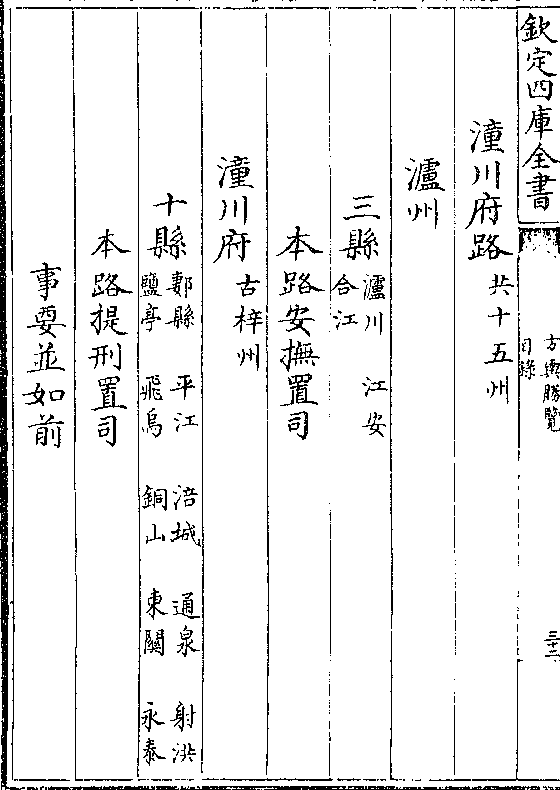 欽定四庫全書
方輿勝覽
目錄
三十二
潼川府路 共十五州
瀘州
三縣 瀘川 江安 合江
本路安撫置司
潼川府 古梓州
十縣 郪縣 平江 涪城 通泉 射洪
鹽亭 飛烏 銅山 東關 永泰
本路提刑置司
事要並如前